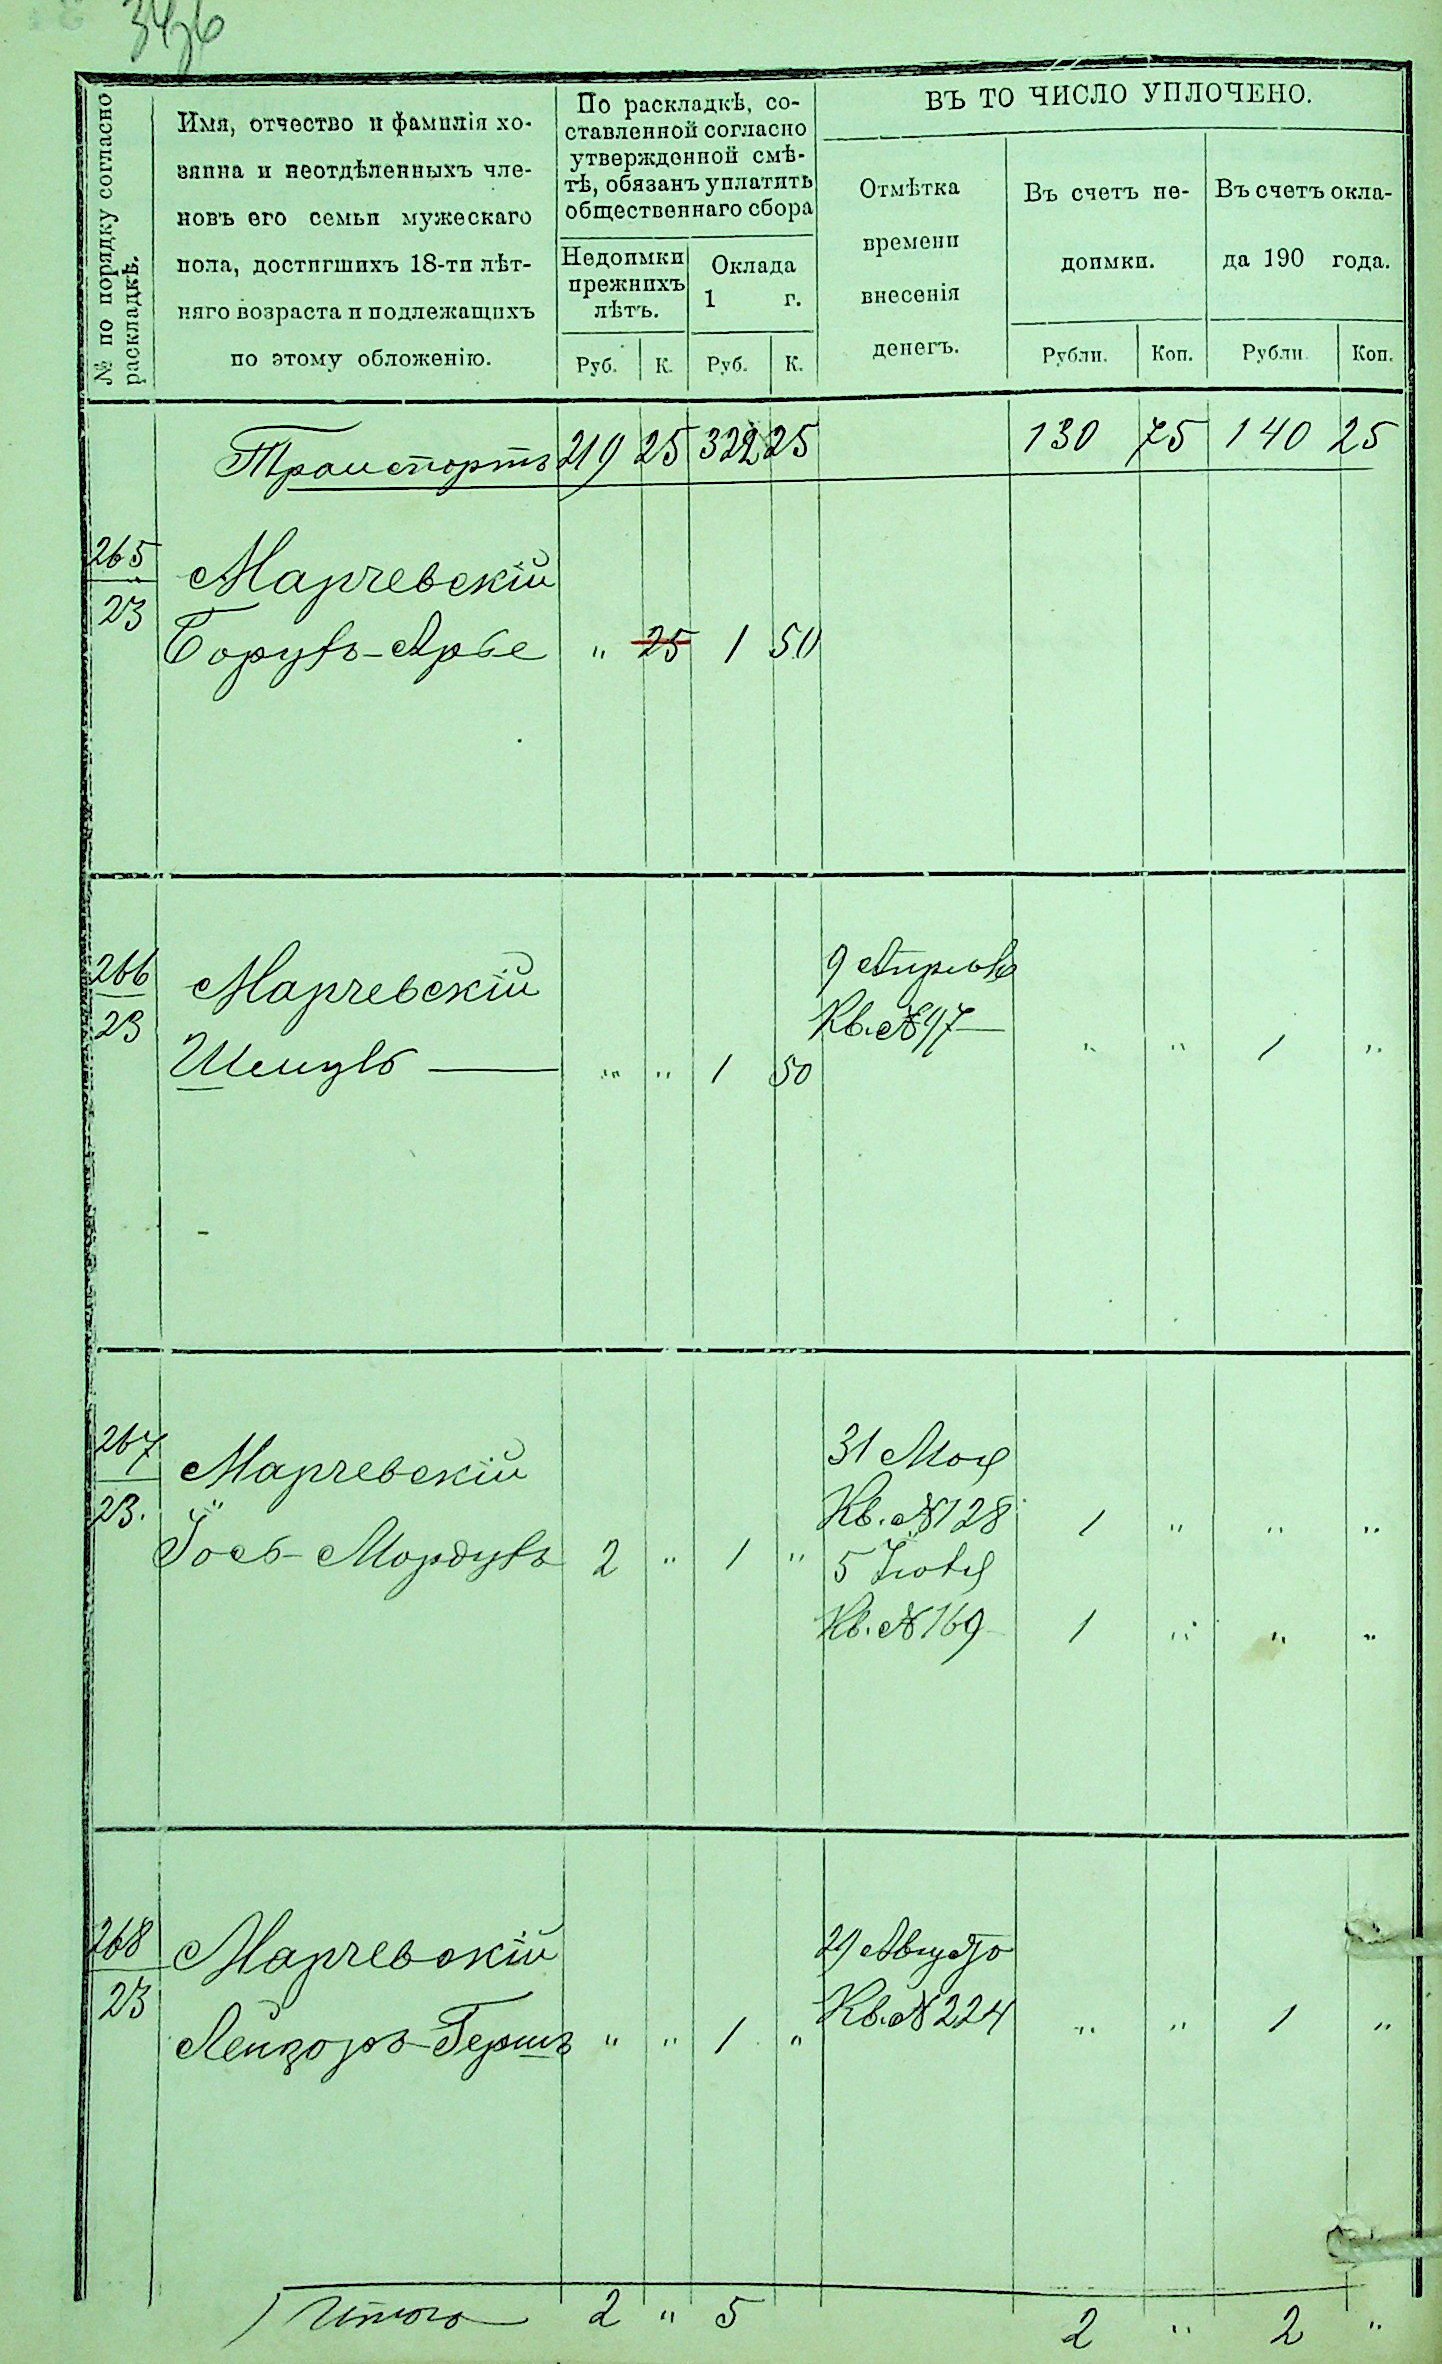 № по порядку согласно
раскладкѣ.
Имя, отчество и фамилія хо-
зяина и неотдѣленныхъ чле-
новъ его семьи мужескаго
пола, достигшихъ 18-ти лѣт-
няго возраста и подлежащихъ
по этому обложенію.
По раскладкѣ, со-
ставленной согласно
утвержденной смѣ-
тѣ, обязанъ уплатить
общественнаго сбора
Недоимки
прежнихъ
лѣтъ.
Оклада
1 г.
Руб. К. Руб. К.
ВЪ ТО ЧИСЛО УПЛОЧЕНО.
Отмѣтка
времени
внесенія
денегъ.
Въ счетъ не-
доимки.
Въ счетъ окла-
да 190 года.
Рубли. Коп. Рубли Коп.
Транспортъ 219 25 322 25 130 75 140 25
265
23
Марчевскій
Борухъ-Арье " 25 1 50
266
23
Марчевскій
Шмуль " " 1 50
9 Апрѣля
Кв. № 97 " " 1 "
267
23.
Марчевскій
Іось-Мордухъ 2 " 1 "
31 Мая
Кв. № 128 1 " " "
5 Іюля
Кв. № 169 1 " " "
268
23
Марчевскій
Лейзоръ-Гершъ " " 1 "
29 Августа
Кв. № 224 " " 1 "
Итого 2 " 5 2 " 2 "